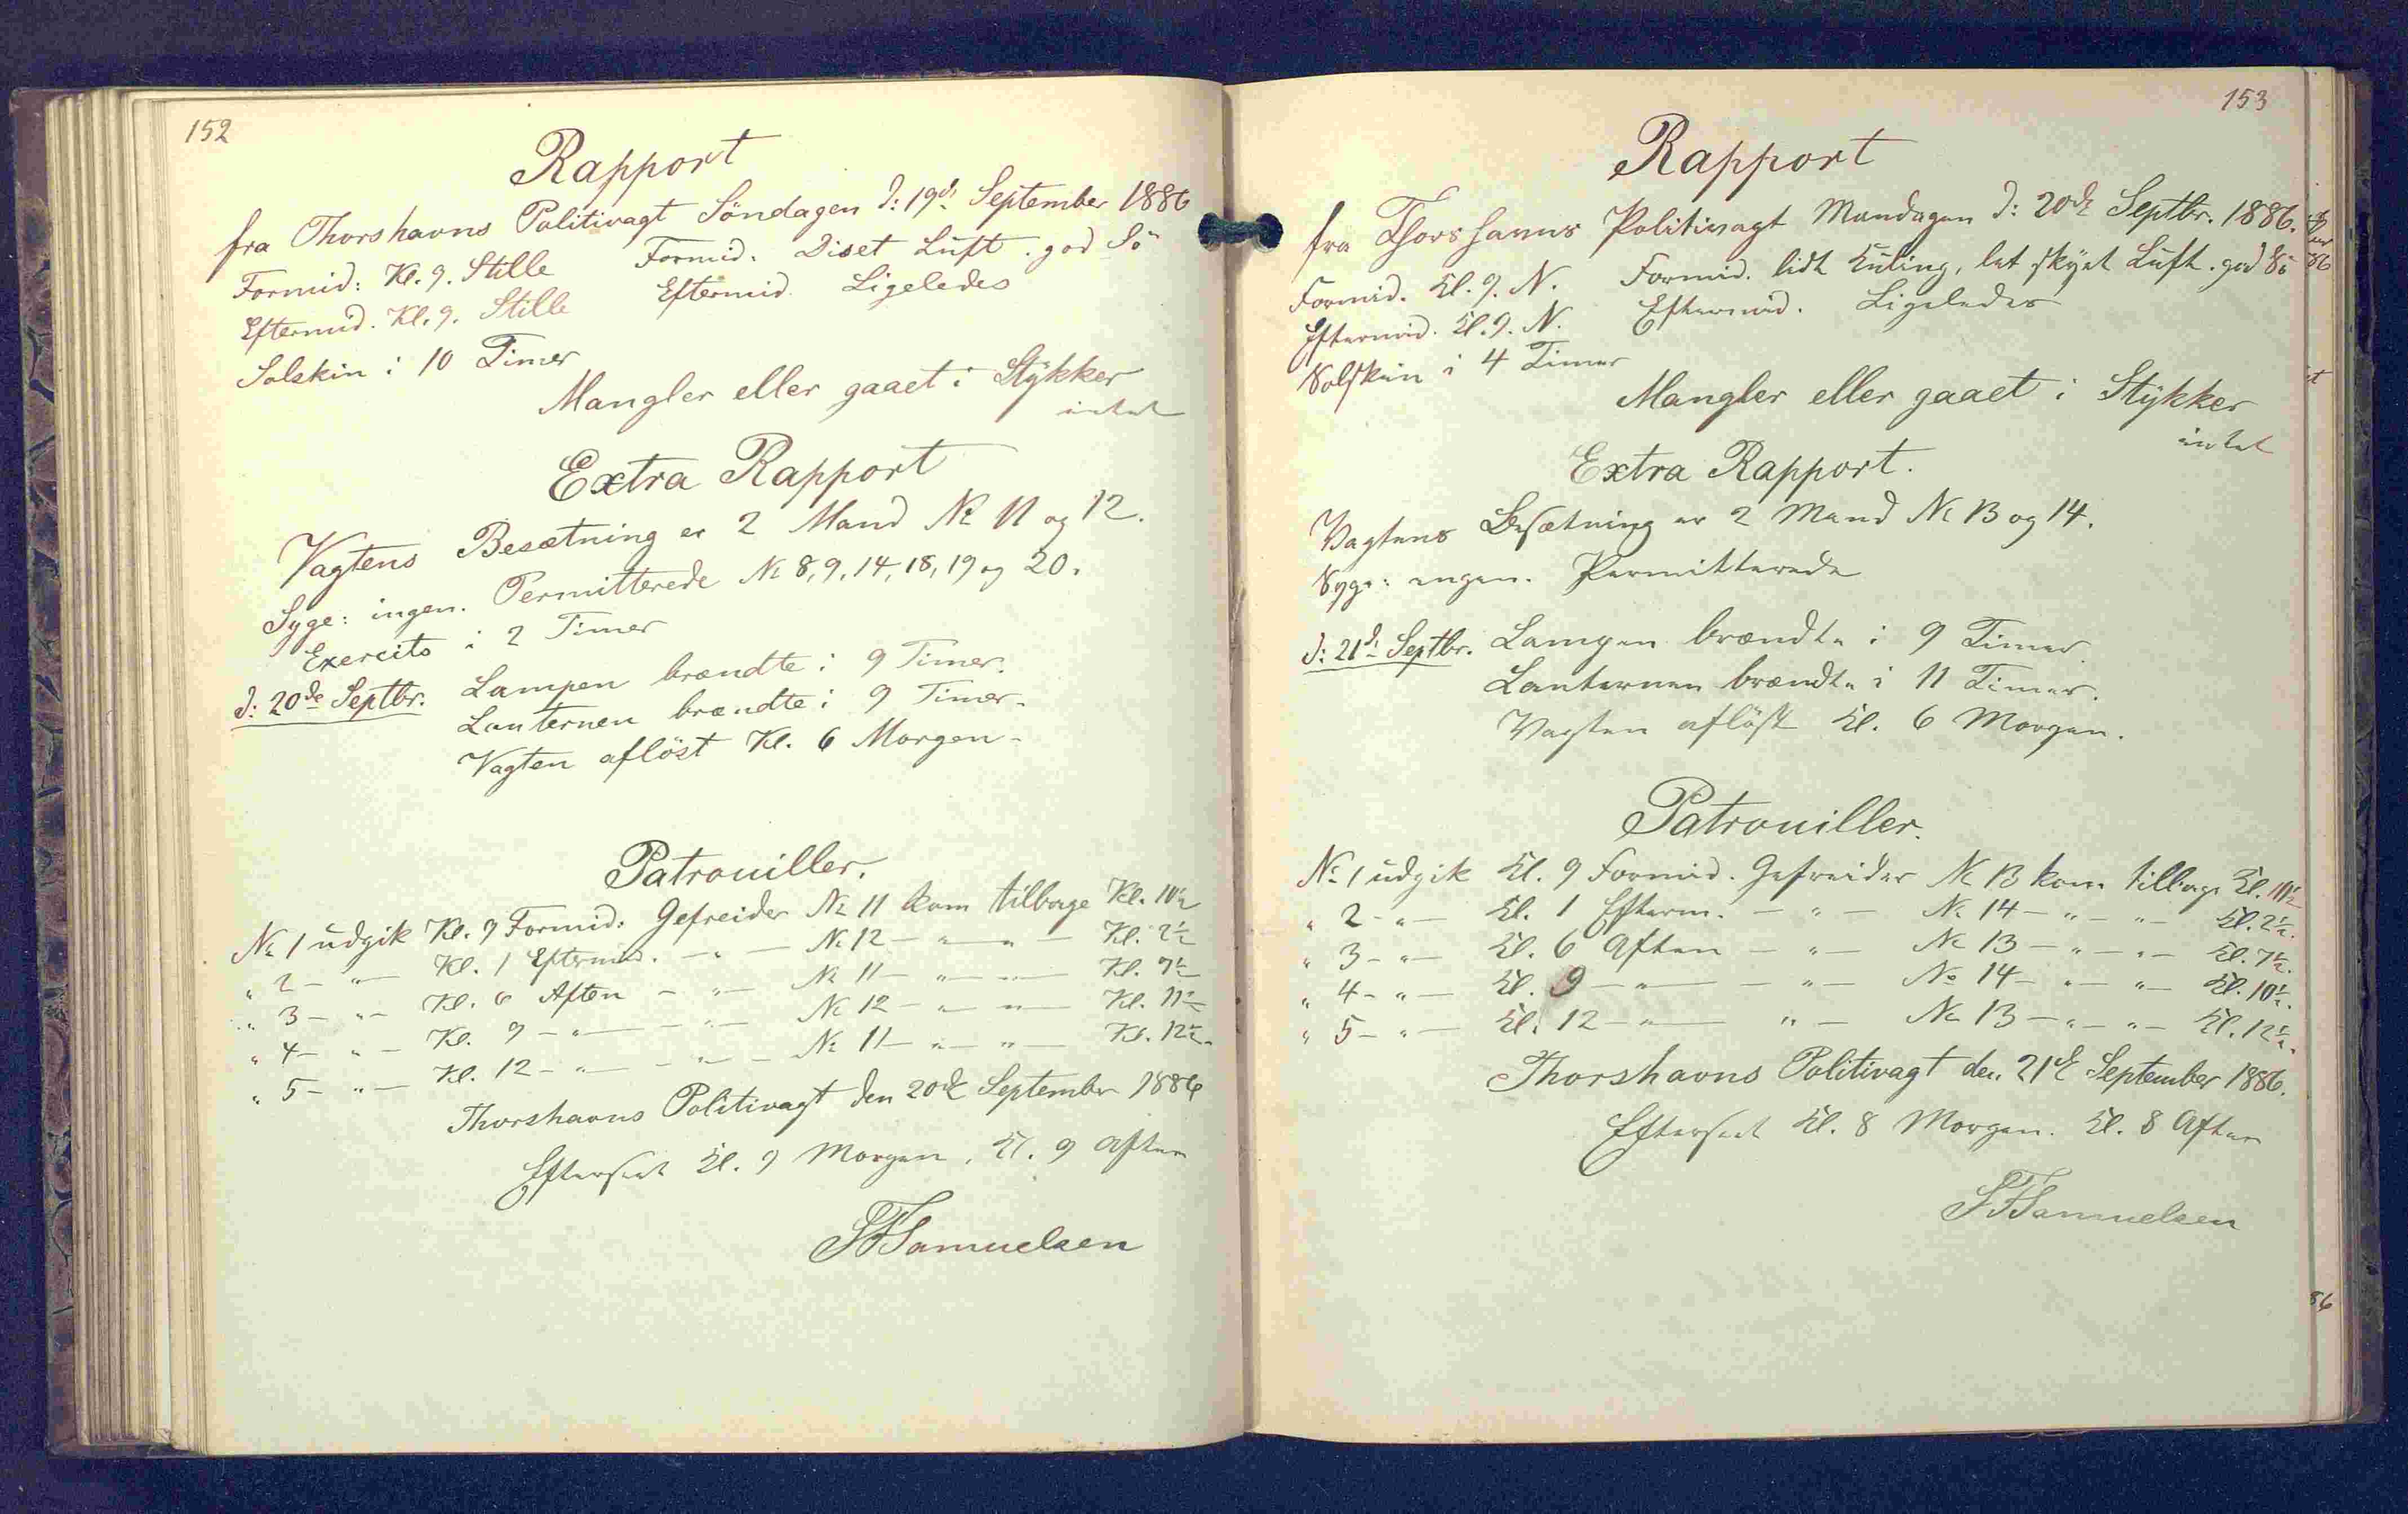 152
Rapport
fra Thorshavns Politivagt Söndagen d: 19de September 1886
Formid: Kl. 9. Stille Formid. Diset Luft. god Sö
Eftermid. Kl. 9. Stille Eftermid. Ligeledes
Solskin i 10 Timer
Mangler eller gaaet i Stykker
intet
Extra Rapport
Vagtens Besætning er 2 Mand № 11 og 12.
Syge: ingen. Permitterede № 8, 9, 14, 18, 19 og 20.
Exercits i 2 Timer
d: 20de Septbr. Lampen brændte i 9 Timer.
Lanternen brændte i 9 Timer.
Vagten aflöst Kl. 6 Morgen.
Patrouiller.
№ 1 udgik Kl. 9 Formid. Gefreider № 11 kom tilbage Kl. 10½
" 2 - " - Kl. 1 Eftermid. - " - № 12 - " - " - Kl. 2½
" 3 - " - Kl. 6 Aften - " - № 11 - " - " - Kl. 7½
" 4 - " - Kl. 9 - " - - " - № 12 - " - " - Kl. 11½
" 5 - " - Kl. 12 - " - - " - № 11 - " - " - Kl. 12½.
Thorshavns Politivagt den 20de September 1886
Efterseet Kl. 9 Morgen. Kl. 9 Aften
Samuelsen
153
Rapport
fra Thorshavns Politivagt Mandagen d: 20de Septbr. 1886.
Formid. Kl. 9. N. Formid. lidt Kuling, let skyet Luft. god Sö
Eftermid. Kl. 9. N. Eftermid. Ligeledes
Solskin i 4 Timer
Mangler eller gaaet i Stykker
intet
Extra Rapport.
Vagtens Besætning er 2 Mand № 13 og 14.
Syge: ingen. Permitterede
d: 21de Septbr. Lampen brændte i 9 Timer.
Lanternen brændte i 11 Timer.
Vagten aflöst Kl. 6 Morgen.
Patrouiller.
№ 1 udgik Kl. 9 Formid. Gefreider № 13 kom tilbage Kl. 10½
" 2 - " - Kl. 1 Efterm. - " - № 14 - " - " - Kl. 2½.
" 3 - " - Kl. 6 Aften - " - № 13 - " - " - Kl. 7½.
" 4 - " - Kl. 9 - " - - " - № 14 - " - " - Kl. 10½.
" 5 - " - Kl. 12 - " - " - № 13 - " - " - Kl. 12½.
Thorshavns Politivagt den 21de September 1886.
Efterseet Kl. 8 Morgen. Kl. 8 Aften
Samuelsen